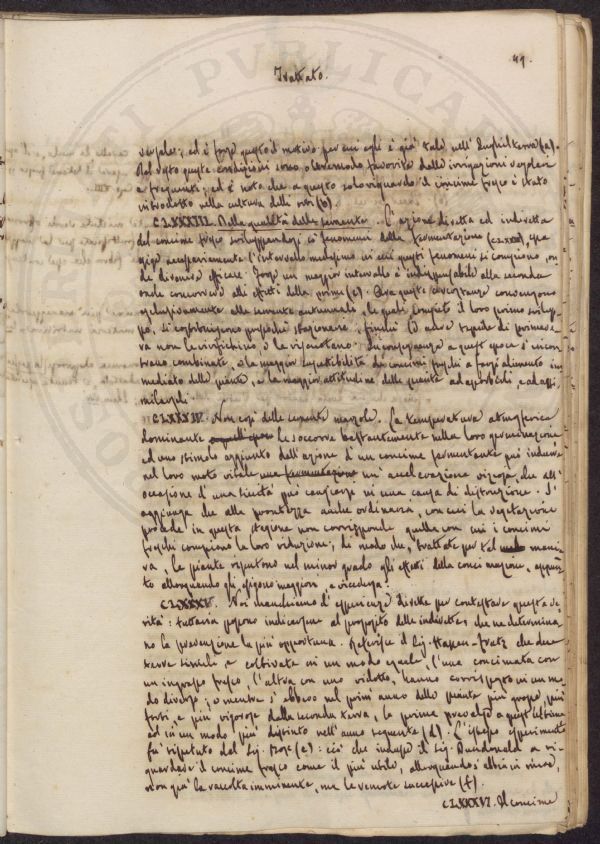 49.
Trattato.
versale; ed è forse questo il motivo per cui egli è già tale nell'Inghilterra (a).
Del resto queste condizioni sono oltremodo favorite dalle irrigazioni regolari
e frequenti; ed è noto che a questo solo riguardo il concime fresco è stato
introdotto nella cultura delli orti (b).
CLXXXIII. Della qualità delle semente. L'azione diretta ed indiretta
del concime fresco sviluppandosi coi fenomeni della fermentazione (CLXXX), esi-
ge necessariamente l'intervallo medesimo in cui questi fenomeni si compiono, on-
de divenire efficace. Forse un maggior intervallo è indispensabile alla seconda
onde concorrere alli effetti della prima (c). Ora queste circostanze convengono
esclusivamente alle semente autunnali, le quali compiuto il loro primo svilup-
po, si costituiscono pressochè stazionarie, finchè l'aure tepide di primave-
ra non le vivifichino e le riscuotano. In conseguenza a quest'epoca s'incon-
trano combinate, e la maggior suscettibilità dei concimi freschi a farsi alimento im-
mediato delle piante, e la maggior attitudine delle piante ad assorbirli, e ad assi-
milarseli.
CLXXXIV. Non così delle semente marzole. La temperatura atmosferica
dominante le soccorre bastantemente nella loro germinazione
ed uno stimolo aggiunto dall'azione d'un concime fermentante può indurre
nel loro moto vitale un'accelerazione viziosa, che all'
occasione d'una siccità può cangiarsi in una causa di distruzione. S'
aggiunga che alla prontezza anche ordinaria, con cui la vegetazione
procede in questa stagione non corrisponde quella con cui i concimi
freschi compiono la loro riduzione; di modo che, trattate per tal manie-
ra, le piante risentono nel minor grado gli effetti della concimazione, appun-
to allorquando gli esigono maggiori, e viceversa.
CLXXXV. Noi manchiamo d'esperienze dirette per contestare questa ve-
rità: tuttavia possono indicarsene al proposito delle indirette, che ne determina-
no la prevenzione la più opportuna. Riferisce il Sig. Hassen-fratz che due
terre simili e coltivate in un modo eguale, l'una concimata con
un ingrasso fresco, l'altra con uno ridotto, hanno corrisposto in un mo-
do diverso; e mentre s'ebbero nel primo anno delle piante più grosse più
forti, e più vigorose dalla seconda terra, la prima prevalse a quest'ultima
ed in un modo più distinto nell'anno seguente (d). L'istesso esperimento
fu ripetuto dal Sig. (e): ciò che indusse il Sig. Dundonald a ri-
guardare il concime fresco come il più utile, allorquando s'abbia in vista,
non già la raccolta imminente, ma le venute successive (f).
CLXXXVI. Il concime